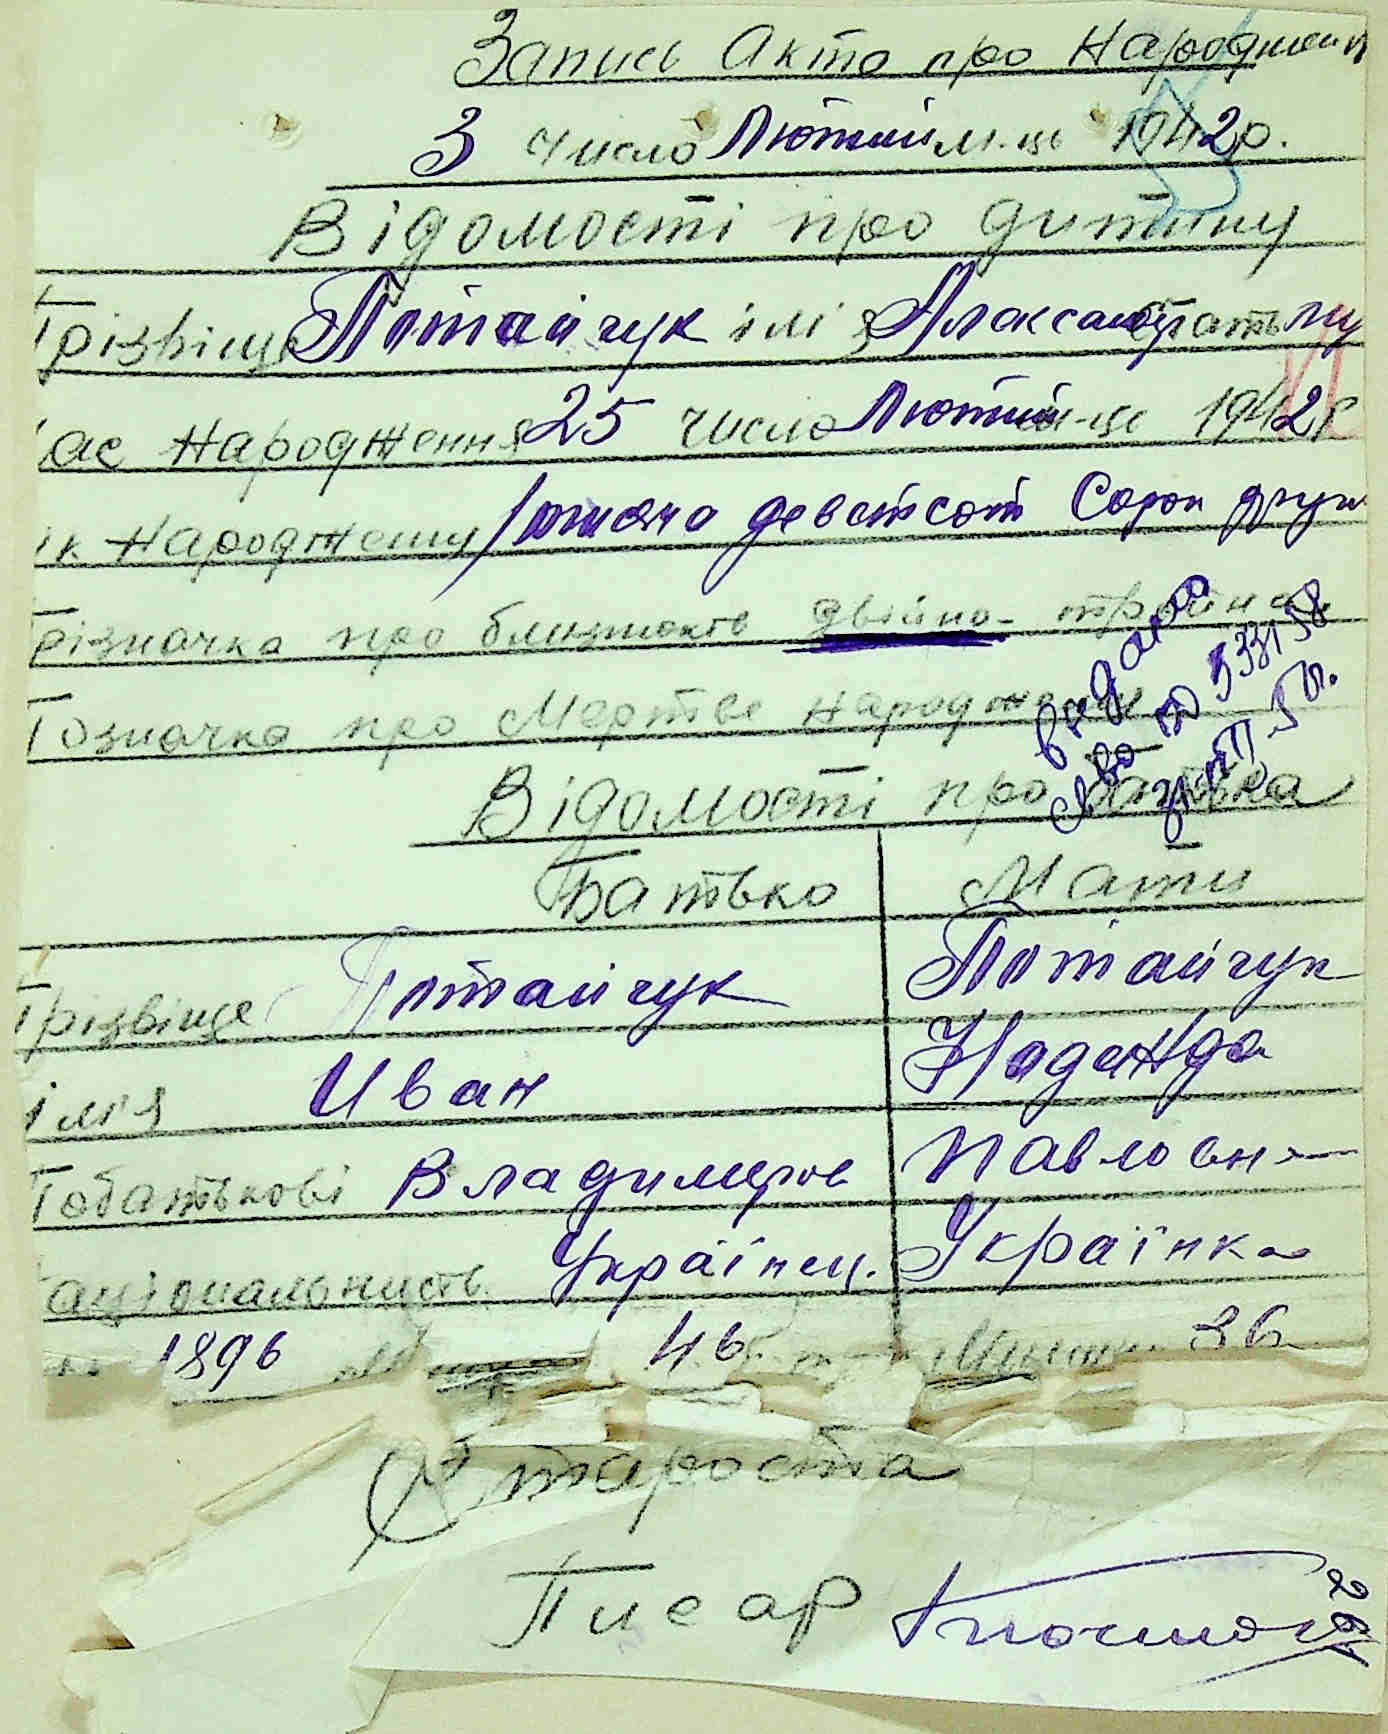 Запись Акта про Народження
3 число Лютий м.ць 1942 р.
Відомості про дитину
Прізвище Потайчук імія Александр стать му
Час Народження 25 число Лютий м-ць 1942 р
ік Народження Тисяча девятсот Сорок друг
Прізначка про близнюків двійна- тройна
Позначка про Мертве народжен
видано
св-во
Відомості про батька
Батько Мати
Прізвище Потайчук Потайчук
імія Иван Надежда
Побатькові Владимиров Павловн
аціональність Українец. Українка
1896 46 36
Староста
Писар